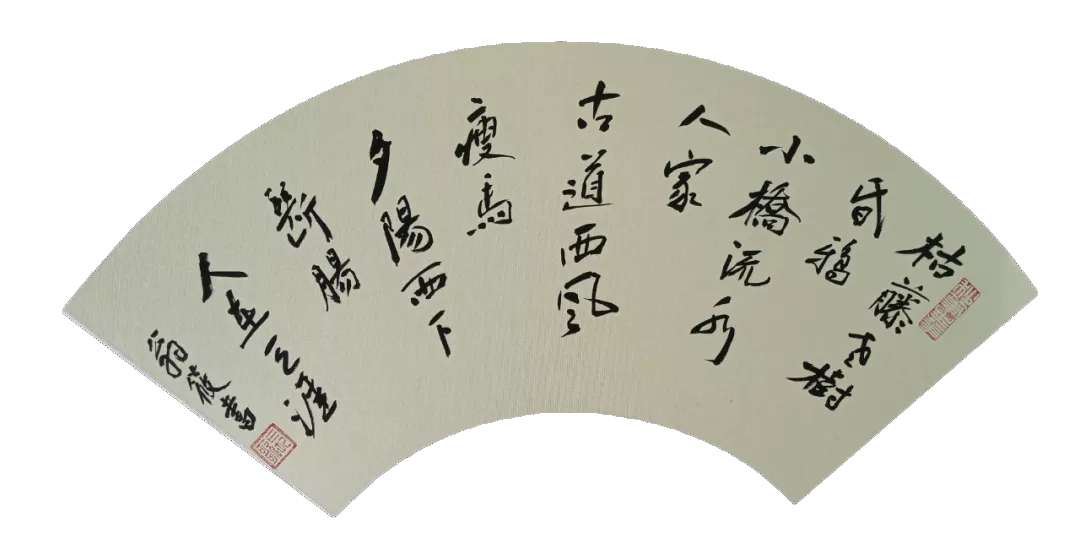 枯藤老樹
昏鴉
小橋流水
人家
古道西風
瘦馬
夕陽西下
斷腸
人在天涯
書